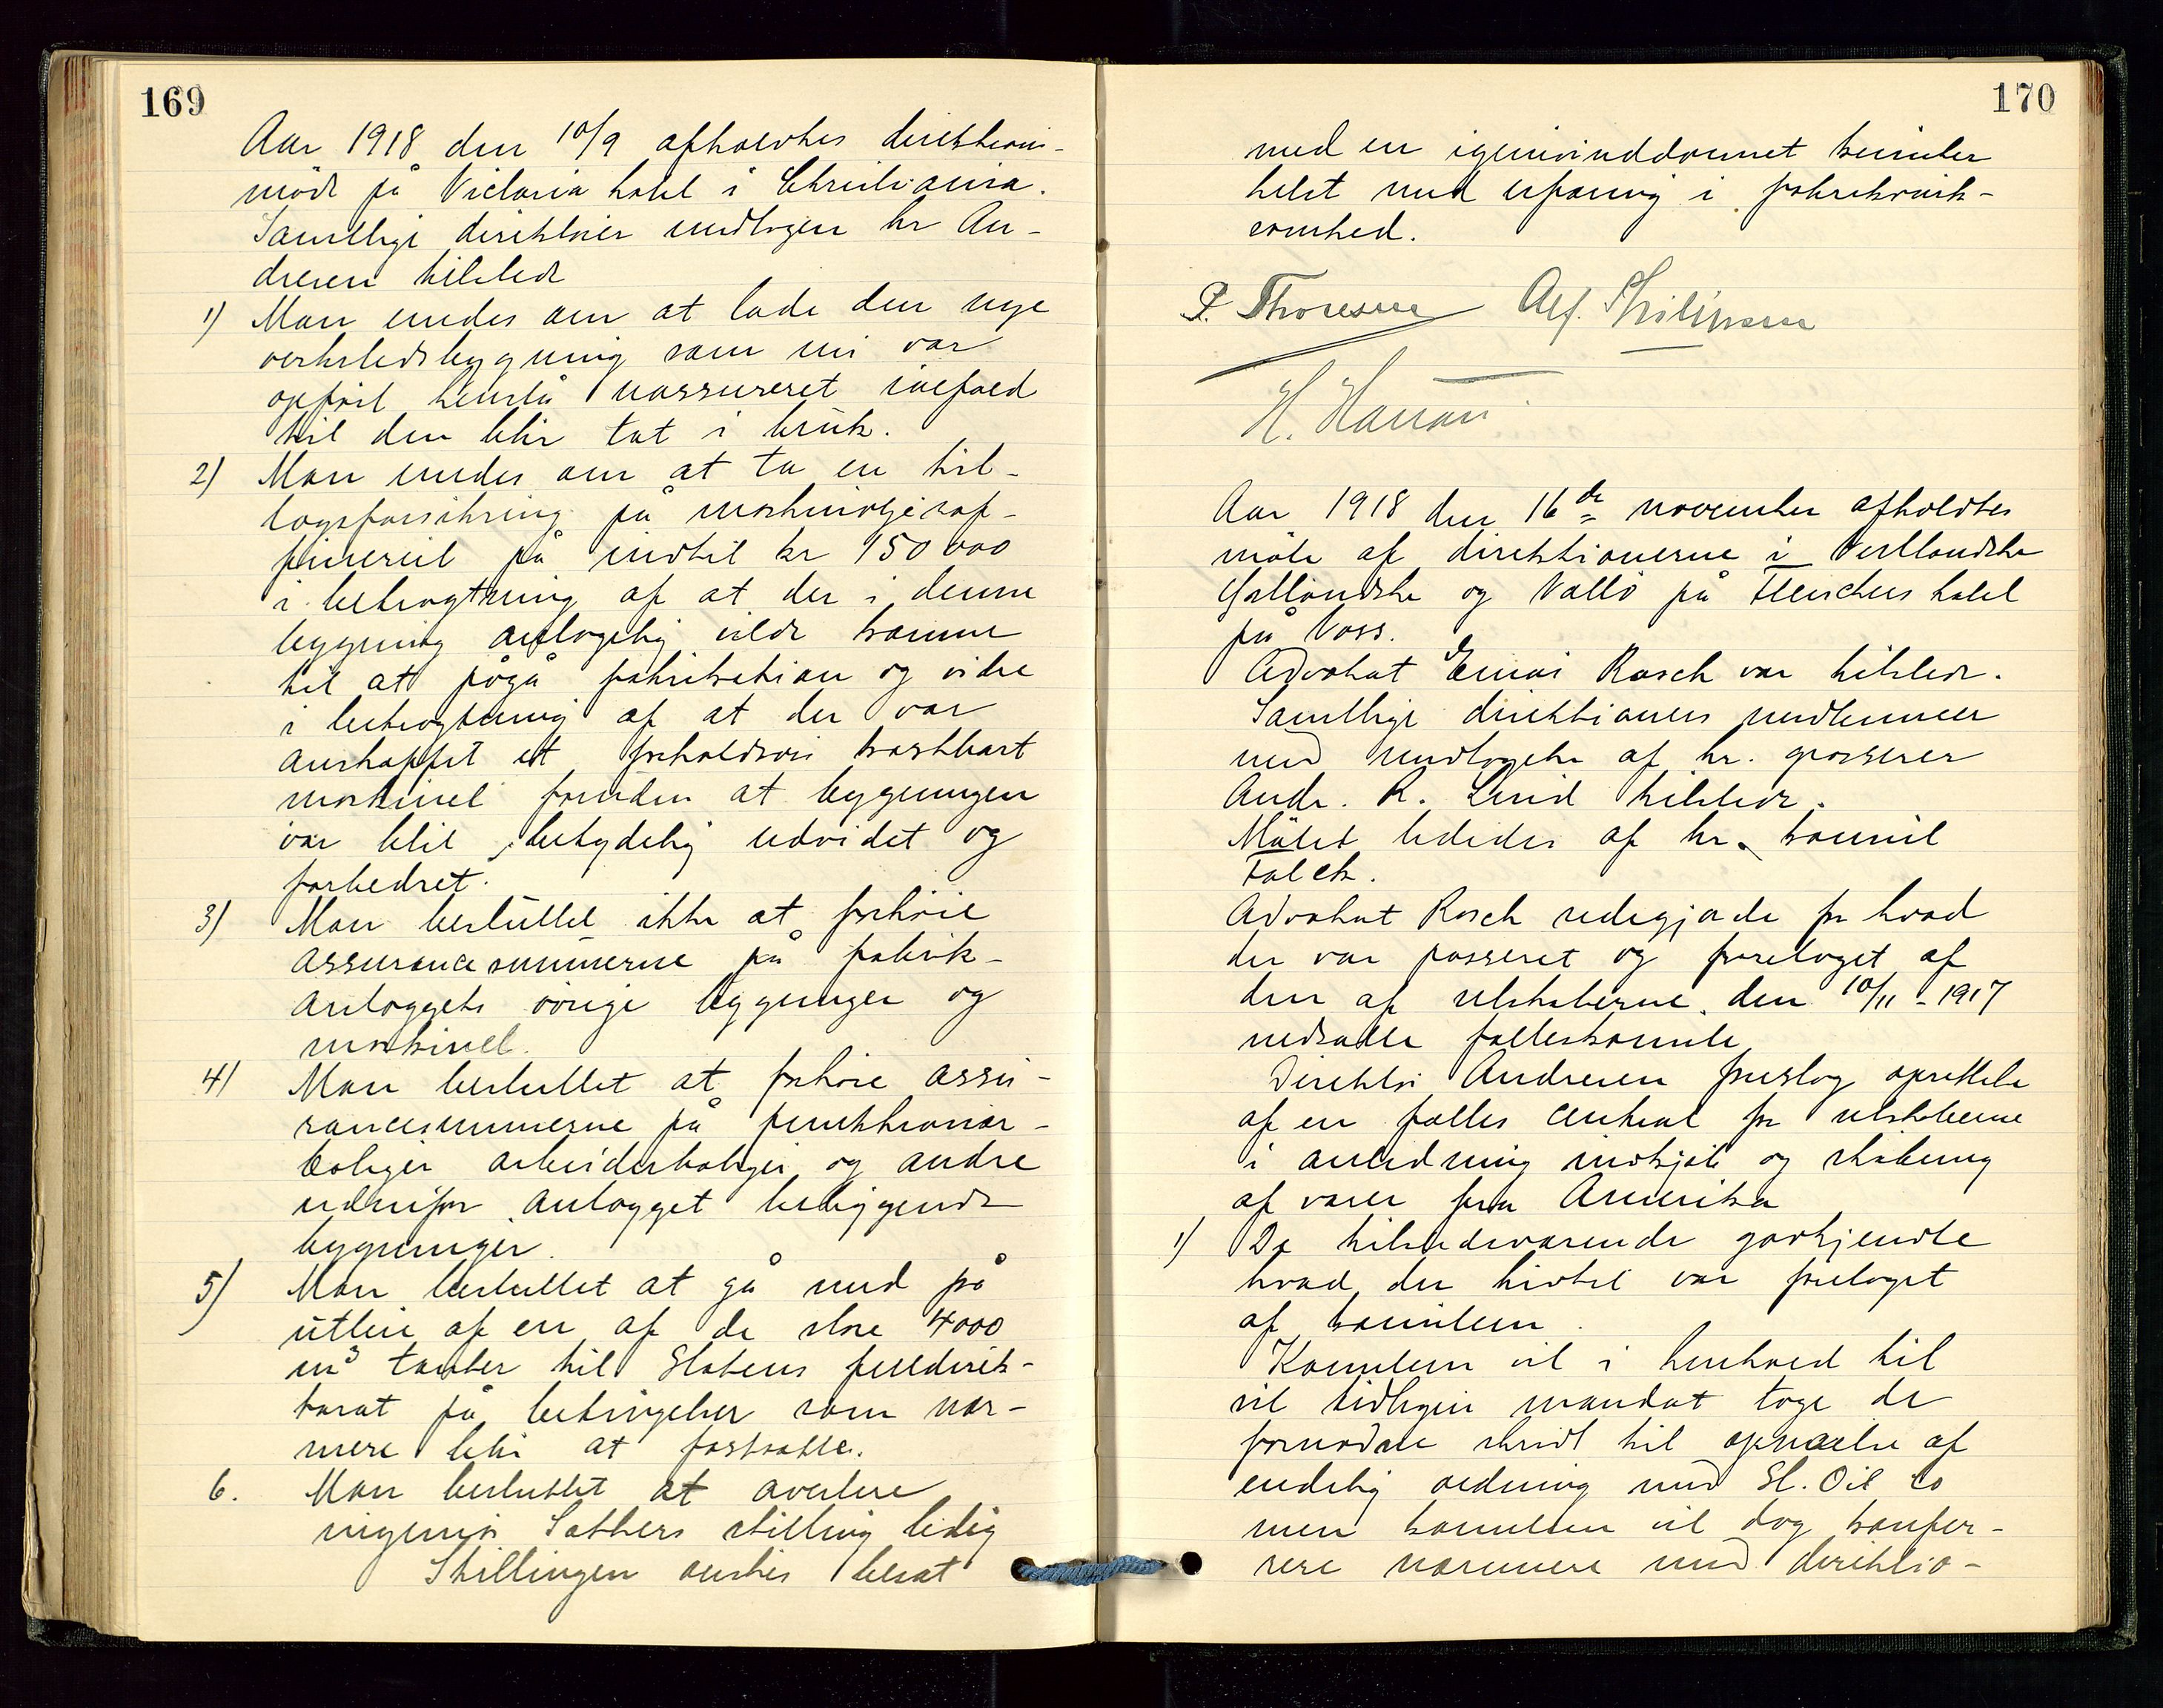 169
Aar 1918 den 10/9 afholdtes direktions-
möde på Victoria hotel i Christiania.
Samtlige direktører undtagen hr An-
dresen tilstede
1) Man enedes om at lade den nye
verkstedsbygning som nu var
opført henstå uassureret ialfald
til den blir tat i bruk.
2) Man enedes om at ta en til-
lægsforsikring på maskinoljeraf-
fineriet på indtil kr 150 000
i betragtning af at der i denne
bygning antagelig vilde komme
til at pågå fabrikation og videre
i betragtning af at der var
anskaffet et forholdsvis kostbart
maskineri foruden at bygningen
var blit betydelig udvidet og
forbedret.
3) Man besluttet ikke at forhöie
assurancesummerne på fabrik-
anlæggets övrige bygninger og
maskineri.
4) Man besluttet at forhöie assu-
rancesummerne på funktionær-
boliger arbeiderboliger og andre
udenfor anlægget beliggende
bygninger.
5) Man besluttet at gå med på
utleie af en af de store 4000
m³ tanker til Statens fueldirek-
torat på betingelser som nær-
mere blir at fastsætte.
6. Man besluttet at avertere
ingeniør Sæthers stilling ledig
Stillingen ønskes besat
170
med en
helst med erfaring i fabrikvirk-
somhed.
P. Thoresen Alf. Philipsen
H. Hansen
Aar 1918 den 16de november afholdtes
möte af direktionerne i Vestlandske
Östlandske og Vallö på Fleischers hotel
på Voss.
Advokat Einar Rosch var tilstede.
Samtlige direktioners medlemmer
med undtagelse af hr. grosserer
Andr. R. Lind tilstede.
Mötet lededes af hr. konsul
Falck.
Advokat Rosch redegjorde for hvad
der var passeret og foretaget af
den af selskaberne den 10/11-1917
nedsatte felleskomite
Direktør Andresen foreslog oprettelse
af en fælles central for selskaberne
i anledning indkjöb og skibning
af varer fra Amerika
1) De tilstedeværende godkjendte
hvad der hidtil var foretaget
af komiteen.
Komiteen vil i henhold til
sit tidligere mandat tage de
fornødne skridt til opnaaelse af
endelig ordning med St. Oil Co
men komiteen vil dog konfer-
rere nærmere med direktio-